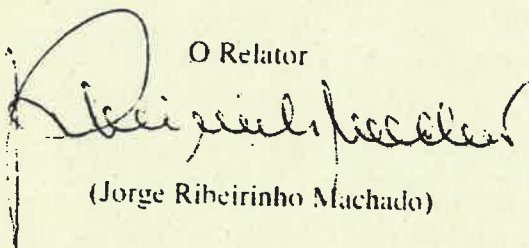 O Relator
(Jorge Ribeirinho Machado)